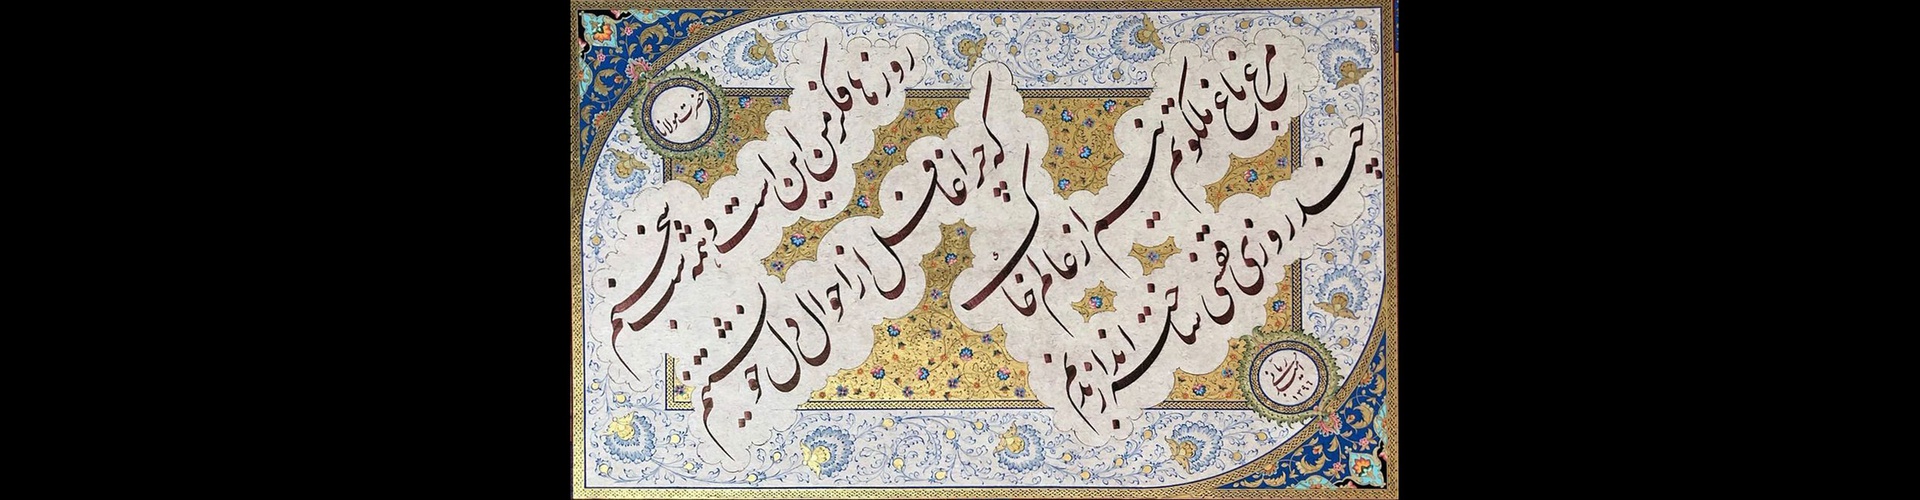 حضرت مولانا
مرغ باغ ملکوتم نیم از عالم خاک
چند روزی قفسی ساخته اند از بدنم
روزها فکر من این است و همه شب سخنم
که چرا غافل از احوال دل خویشتنم
۱۳۹۶